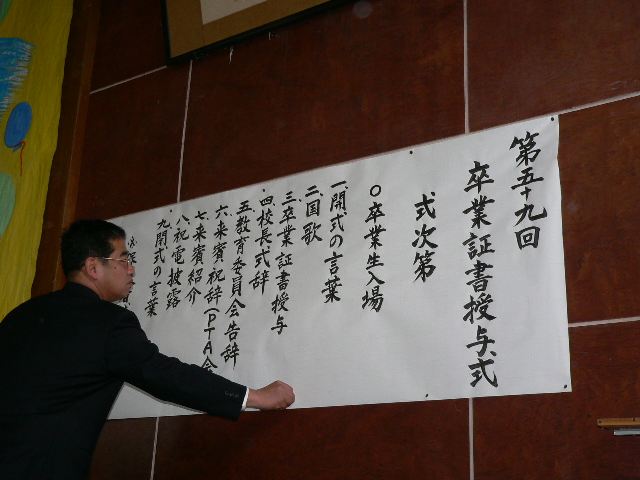 第五十九回
卒業証書授与式
式次第
○卒業生入場
一、開式の言葉
二、国歌
三、卒業証書授与
四、校長式辞
五、教育委員会告辞
六、来賓祝辞(PTA会
七、来賓紹介
八、祝電披露
九、閉式の言葉